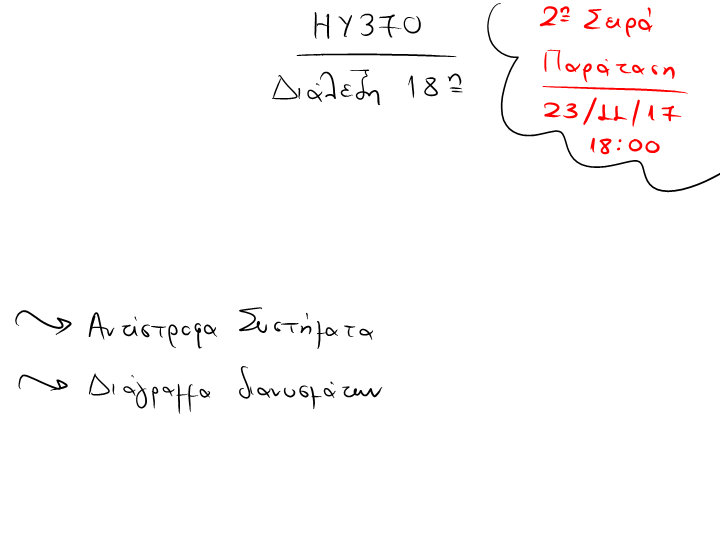 ΗΥ370
Διάλεξη 18η
2η Σειρά
Παράταση
23/11/17
18:00
Αντίστροφα Συστήματα
Διάγραμμα διανυσμάτων